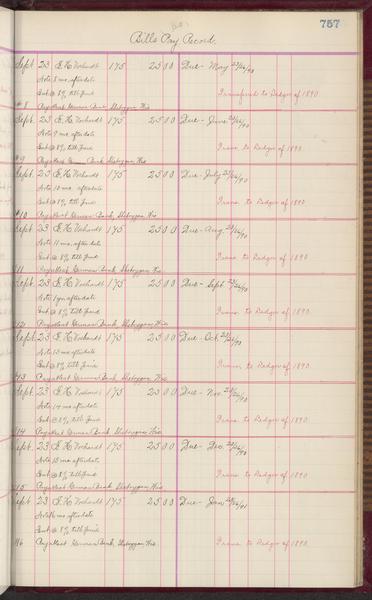 757
Bills Pay Record.
Sept 23 E. H. 175 25 00 Due - May 23/26/90
Note 8 mo. after date
Int @ 8% till paid Transferred to Ledger of 1890
#8 Pay at Bank German Bank Sheboygan Wis
Sept 23 E. H. 175 25 00 Due - June 23/26/90
Note 9 mo. after date
Int @ 8% till paid Trans to Ledger of 1890
#9 Pay at Bank Sheboygan Wis.
Sept 23 E. H. 175 25 00 Due - July 23/26/90
Note 10 mo. after date
Int @ 8% till paid Trans to Ledger of 1890
#10 Pay at German Bank, Sheboygan, Wis.
Sept 23 E. H. 175 25 00 Due - Aug 23/26/90
Note 11 mo. after date
Int @ 8% till paid Trans to Ledger of 1890
11 Pay at German Bank Sheboygan Wis
Sept 23 E. H. 175 25 00 Due - Sept 23/26/90
Note 1 yr. after date
Int @ 8% till paid Trans to Ledger of 1890
12 Pay at German Bank, Sheboygan, Wis.
Sept 23 E. H. 175 25 00 Due - Oct. 23/26/90
Note 13 mo after date
Int @ 8% till paid Trans to Ledger of 1890
#13 Pay at German Bank Sheboygan Wis.
Sept. 23 E. H. 175 25 00 Due - Nov. 23/26/90
Note 14 mo after date
Int @ 8% till paid Trans to Ledger of 1890.
#14 Pay at German Bank, Sheboygan Wis.
Sept. 23 E. H. 175 25 00 Due - Dec. 23/26/90
Note 15 mo after date
Int @ 8% till paid Trans to Ledger of 1890.
15 Pay at German Bank, Sheboygan Wis.
Sept 23 E. H. 175 25 00 Due - Jan 23/26/91
Note 16 mo after date
Int @ 8% till paid
#16 Pay at German Bank, Sheboygan, Wis. Trans to Ledger of 1890